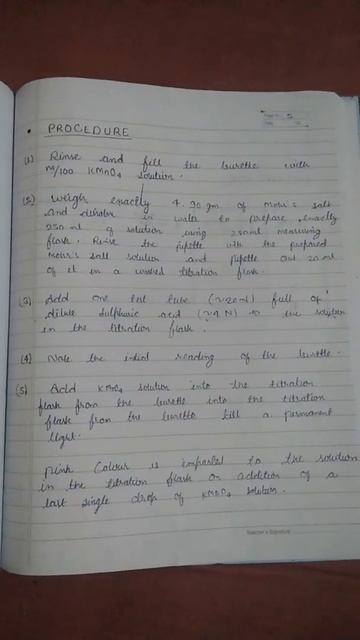 PROCEDURE
(1) Rinse and fill the burette with
M/100 KMnO4 solution.
(2) Weigh exactly 4.90 gm of Mohr's salt
and dissolve in water to prepare exactly
250 ml of solution using 250ml measuring
flask. Rinse the pipette with the prepared
Mohr's salt solution and pipette out 20 ml
of it in a washed titration flask.
(3) Add one test tube (~20ml) full of
dilute sulphuric acid (~4 N) to the solution
in the titration flask.
(4) Note the initial reading of the burette.
(5) Add KMnO4 solution into the titration
flask from the burette into the titration
flask from the burette till a permanent
light.
pink Colour is imparted to the solution
in the titration flask on addition of a
last single drop of KMnO4 solution.
Teacher's Signature